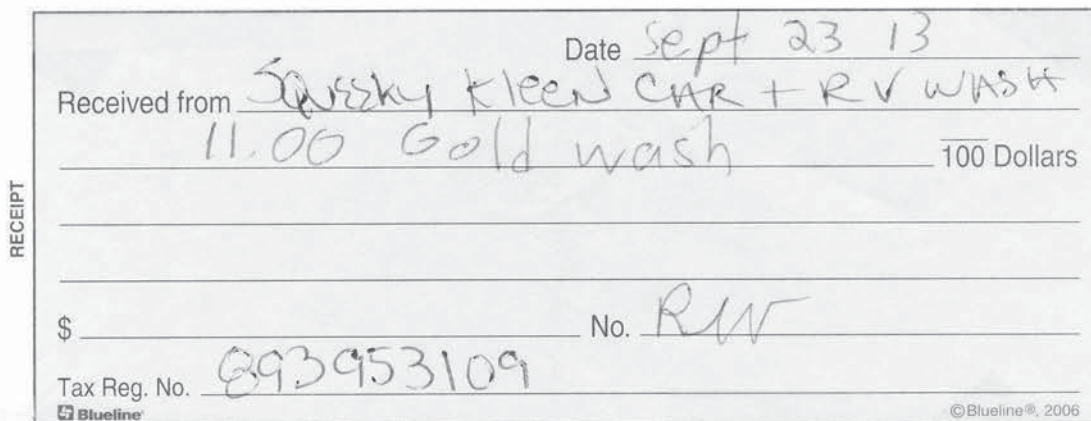 Date Sept 23 13
Received from Squeeky Kleen CAR + RV WASH
11.00 Gold wash 100 Dollars
RECEIPT
$ No. RW
Tax Reg. No. 893953109
Blueline ©Blueline®, 2006